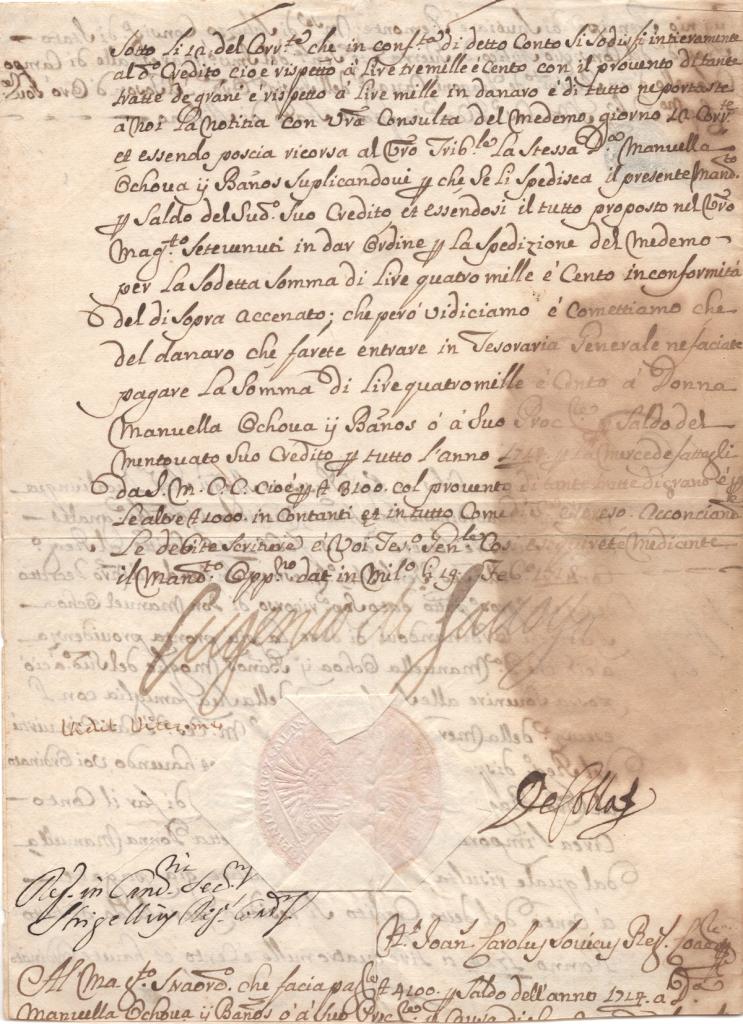 Sotto li 12. del Corr.te che in conf.tà di detto Conto si sodisfi intieramente
al d.o Credito cioè rispetto à lire tremille è Cento con il provento di tante
tratte de grani è rispetto à lire mille in danaro è di tutto ne portaste
à noi la notitia con vr̃a Consulta del Medemo giorno 12 Corr.te
et essendo poscia ricorsa al vr̃o Trib.le la stessa D.a Manuella
Ochoua ÿ Bãnos suplicandovi ꝑ che se li spedisca il presente Mand.to
ꝑ saldo del Sud.o suo Credito et essendosi il tutto proposto nel vr̃o
Mag.to setevenuti in dar Ordine ꝑ la spedizione del Medemo
per la sodetta Somma di lire quatromille è Cento in conformità
del di sopra accenato; che però vidiciamo è Comettiamo che
del danaro che farete entrare in Tesoraria Generale ne faciate
pagare la somma di lire quatromille è Cento à Donna
Manuella Ochoua ÿ Bãnos ò à suo Proc.re ꝑ saldo del
mentovato suo Credito ꝑ tutto l'anno 1717. ꝑ la mercede fattagli
da S. M. C. C. cioè ꝑ 3100. col provento di tante tratte di grano è ꝑ
le altre 1000. in Contanti et in tutto Come di espreso. Acconciand
le debite scritture è Voi Tes.o Gen.le Cos eseguirete Mediante
il Mand.to Opp.no dat in Mil.o 19. Feb.o 1718.
Eugenio di Savoya
Vidit
MEDIOLAN
De Colla
Reg. in Canc. Secr.
Strigellius Reg.
Joan̄s Carolus Reg.
Al Mag.to Straord.o che facia pag.re 4100. ꝑ saldo dell'anno 1717. a D.a
Manuella Ochoua ÿ Bãnos ò à suo Proc.re à Causa di